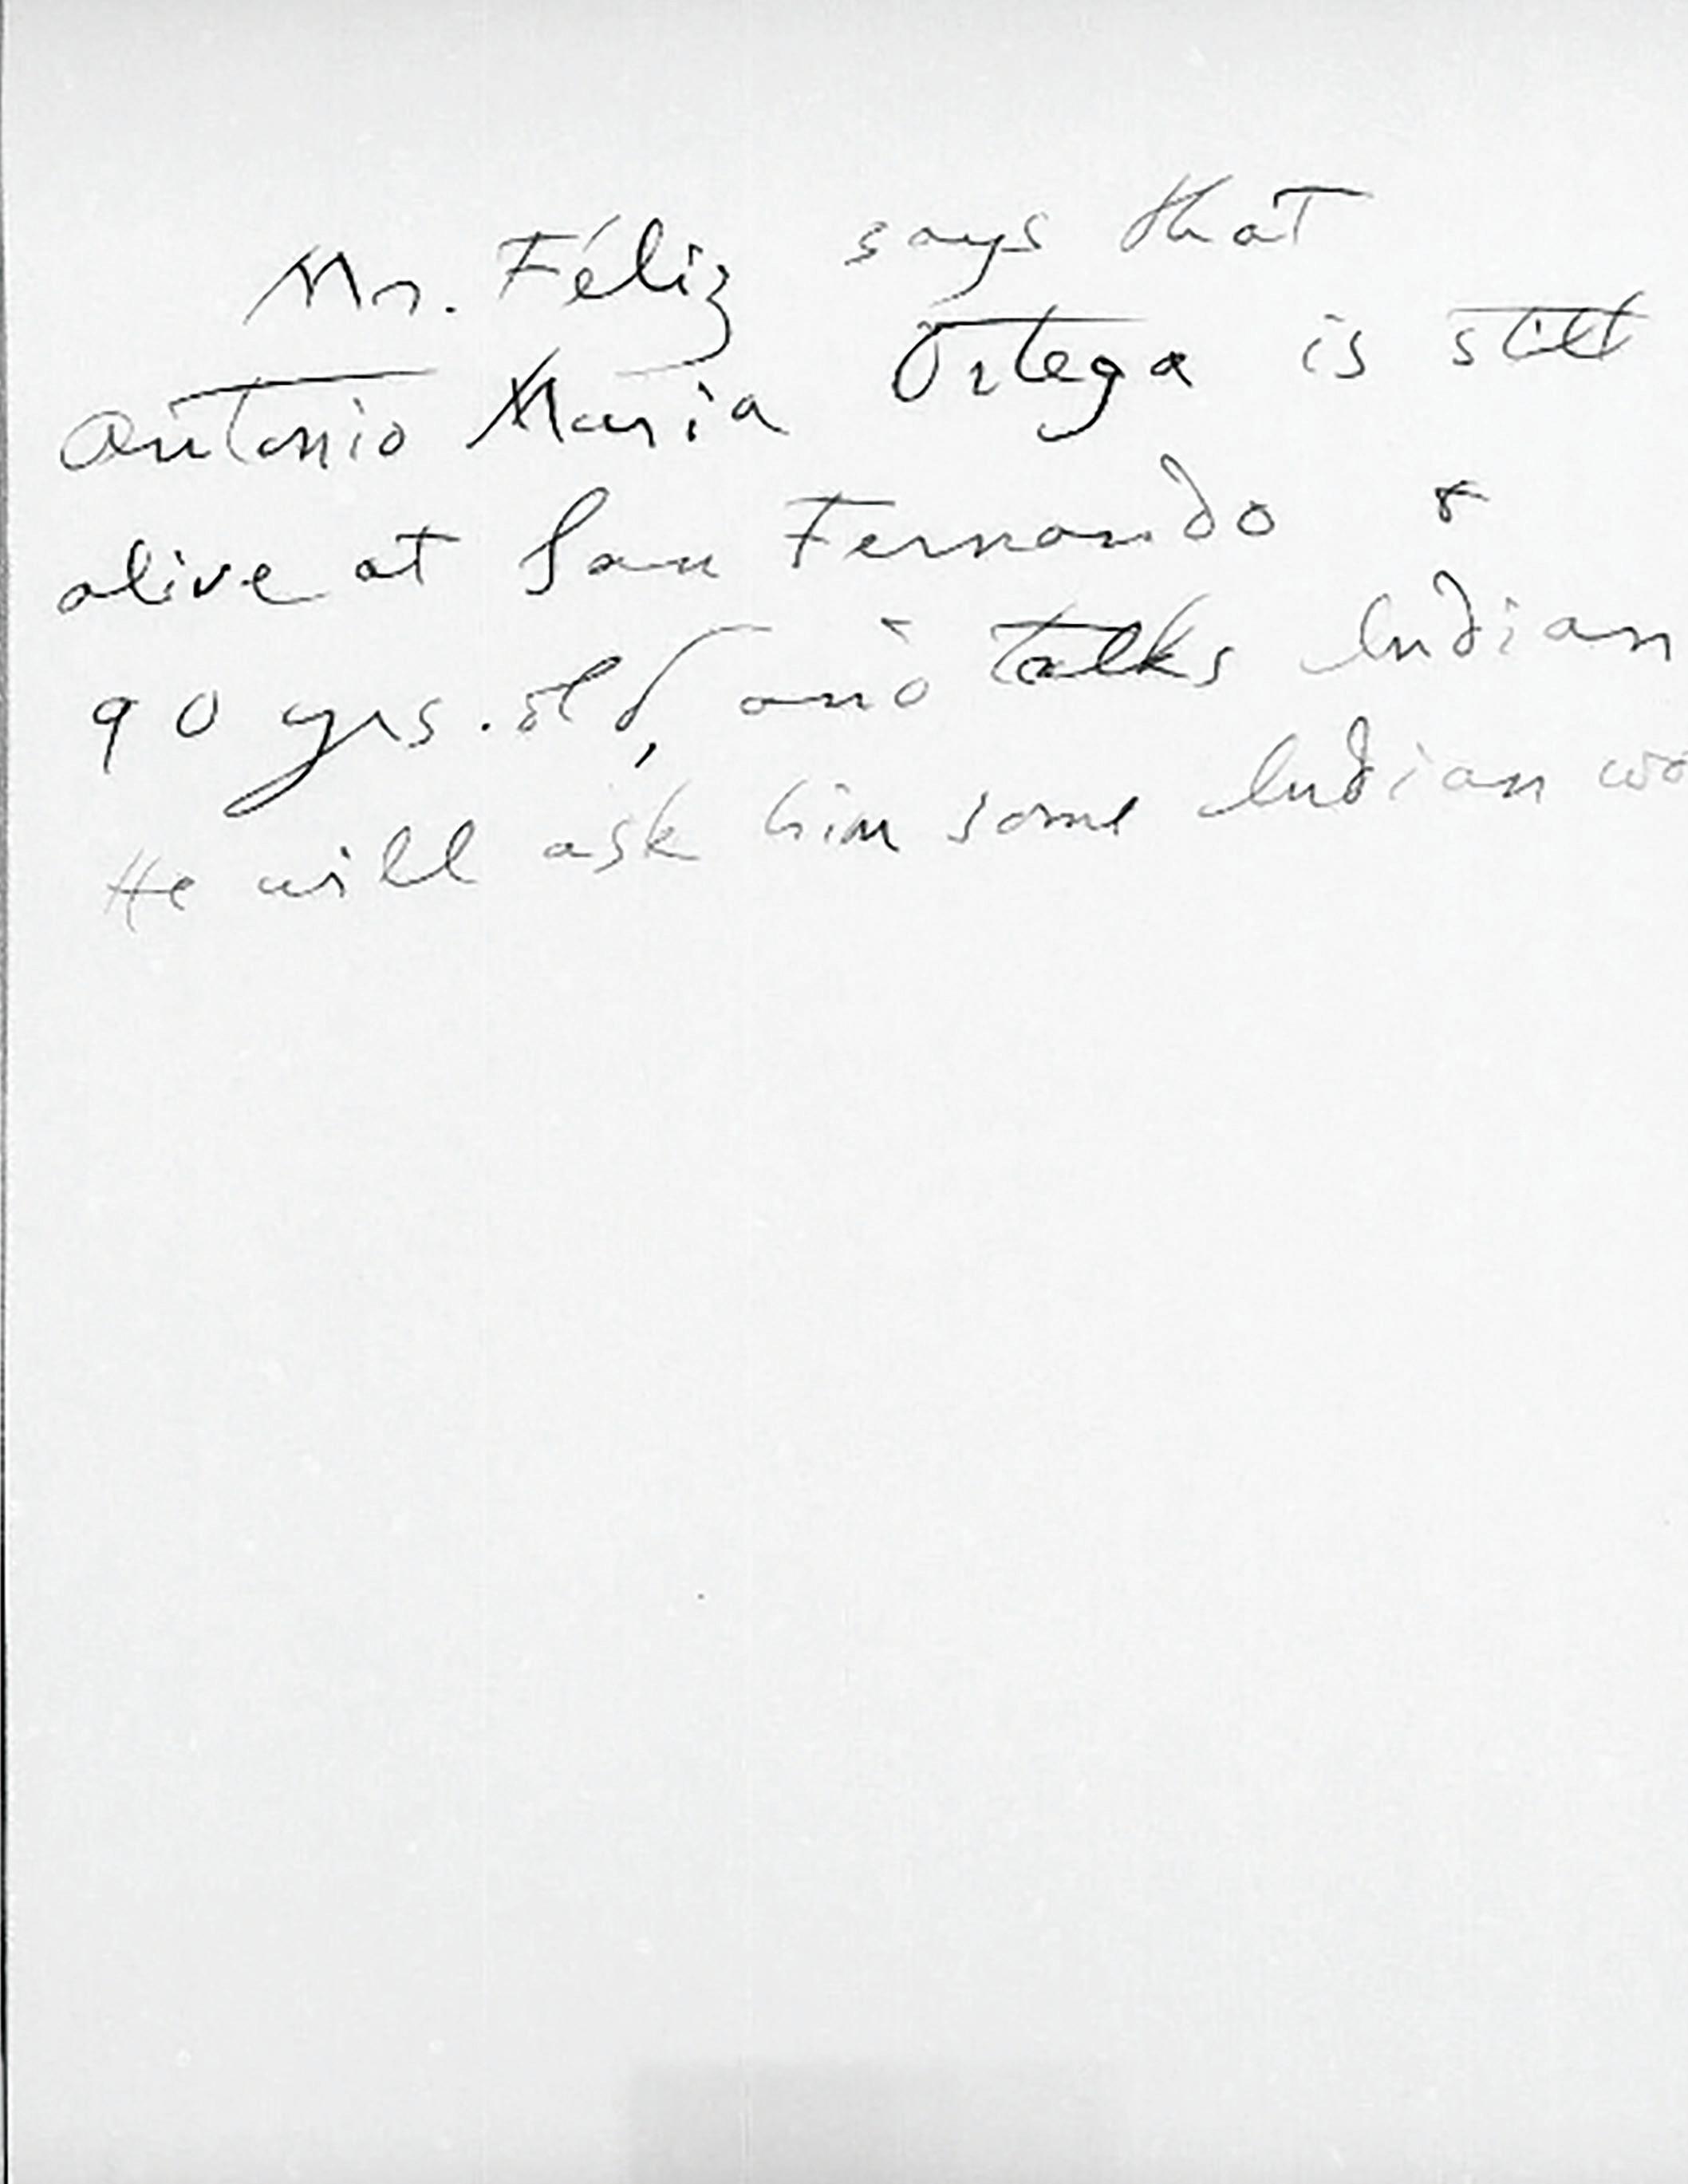 Mr. Féliz says that
Antonio Maria Ortega is still
alive at San Fernando &
90 yrs. old, and talks Indian
He will ask him some Indian wo